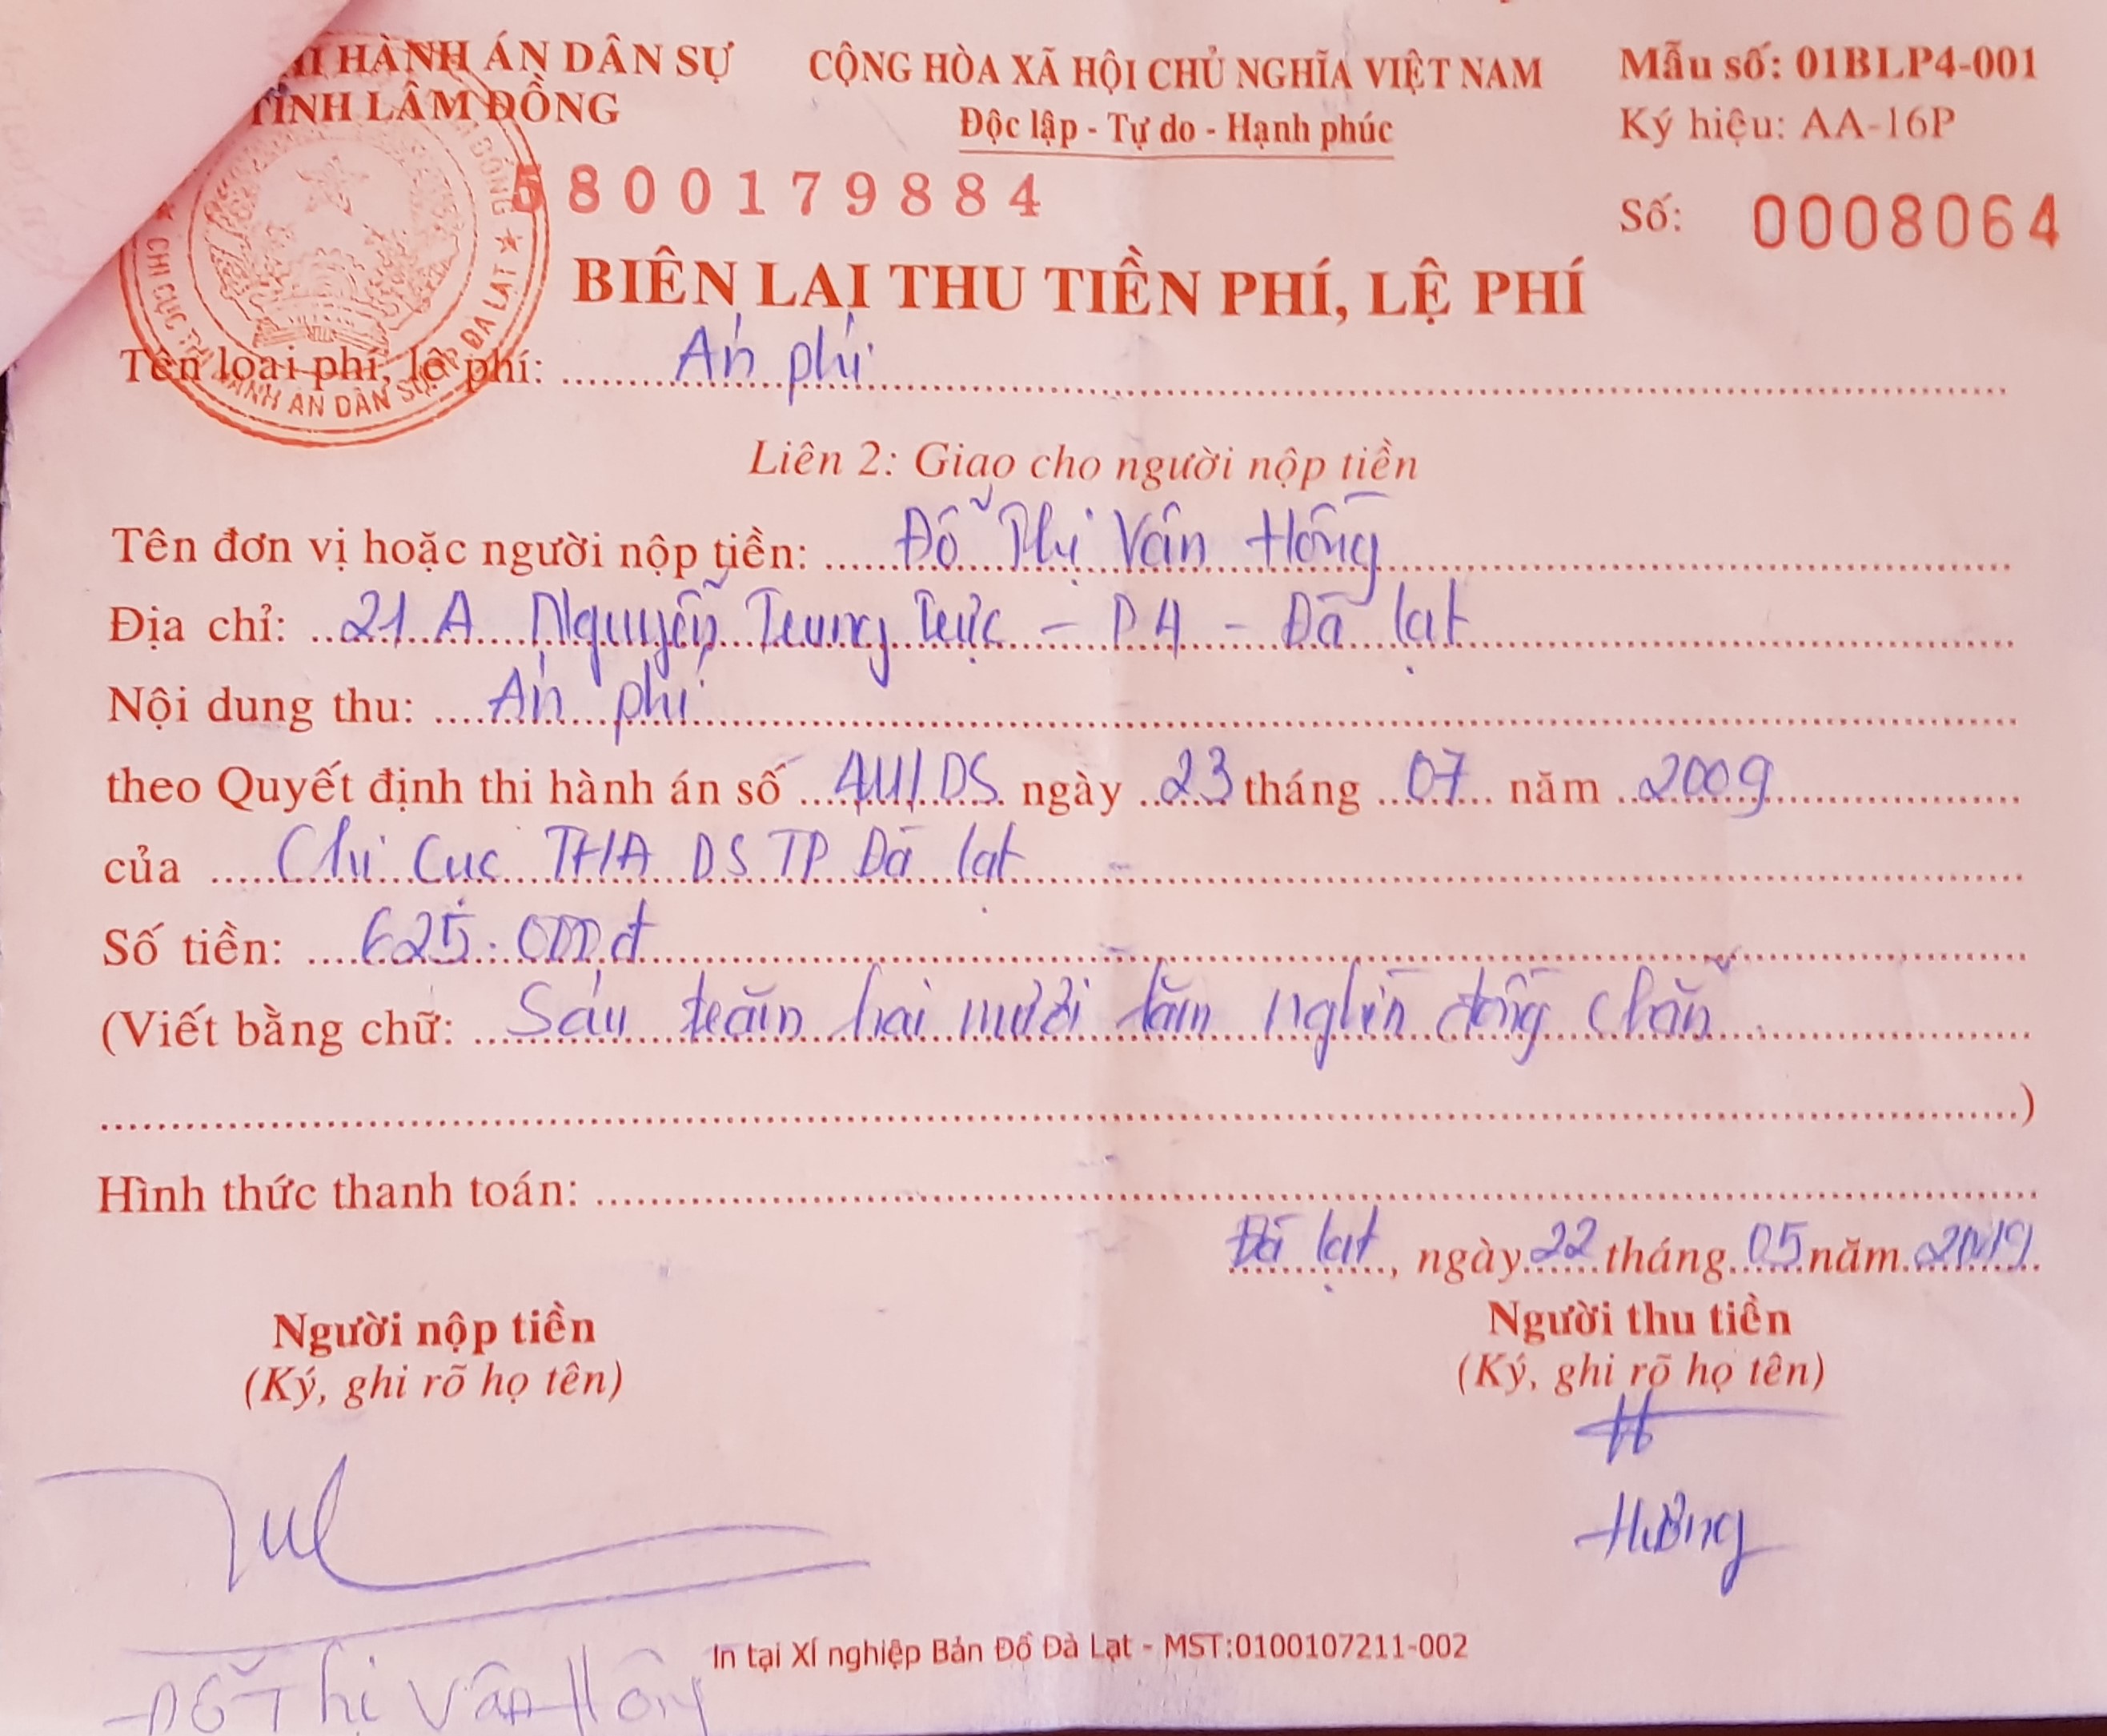 HÀNH ÁN DÂN SỰ
TỈNH LÂM ĐỒNG
CỘNG HÒA XÃ HỘI CHỦ NGHĨA VIỆT NAM
Độc lập - Tự do - Hạnh phúc
Mẫu số: 01BLP4-001
Ký hiệu: AA-16P
5800179884
Số: 0008064
BIÊN LAI THU TIỀN PHÍ, LỆ PHÍ
Tên loại phí, lệ phí: Án phí
Liên 2: Giao cho người nộp tiền
Tên đơn vị hoặc người nộp tiền: Đỗ Thị Vân Hồng
Địa chỉ: 21A Nguyễn Trung Trực - P4 - Đà Lạt
Nội dung thu: Án phí
theo Quyết định thi hành án số /DS ngày 23 tháng 07 năm 2009
của Chi Cục THA DS TP Đà Lạt
Số tiền: 625.000đ
(Viết bằng chữ: Sáu trăm hai mươi lăm nghìn đồng chẵn
)
Hình thức thanh toán:
Đà Lạt, ngày 22 tháng 05 năm 2019
Người nộp tiền
(Ký, ghi rõ họ tên)
Người thu tiền
(Ký, ghi rõ họ tên)
Hương
In tại Xí nghiệp Bản Đồ Đà Lạt - MST:0100107211-002
Đỗ Thị Vân Hồng